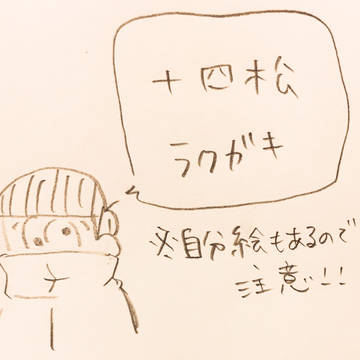 十四松
ラクガキ
※自分絵もあるので
注意!!